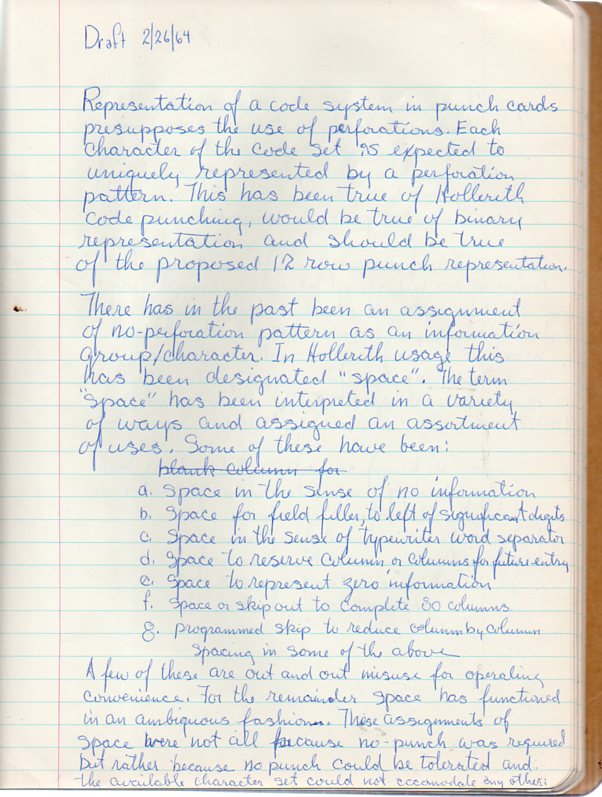 Draft 2/26/64
Representation of a code system in punch cards
presupposes the use of perforations. Each
character of the code set is expected to
uniquely represented by a perforation
pattern. This has been true of Hollerith
code punching, would be true of binary
representation and should be true
of the proposed 12 row punch representation.
There has in the past been an assignment
of no-perforation pattern as an information
group/character. In Hollerith usage this
has been designated "space". The term
"space" has been interpreted in a variety
of ways and assigned an assortment
of uses. Some of these have been:
blank column for
a. space in the sense of no information
b. space for field filler, to left of significant digits
c. space in the sense of typewriter word separator
d. space to reserve column or columns for future entry
e. space to represent zero information
f. space or skip out to complete 80 columns.
g. programmed skip to reduce column by column
spacing in some of the above
A few of these are out and out misuse for operating
convenience. For the remainder space has functioned
in an ambiguous fashion. These assignments of
space were not all because no-punch was required
but rather because no punch could be tolerated and
the available character set could not accomodate any other: